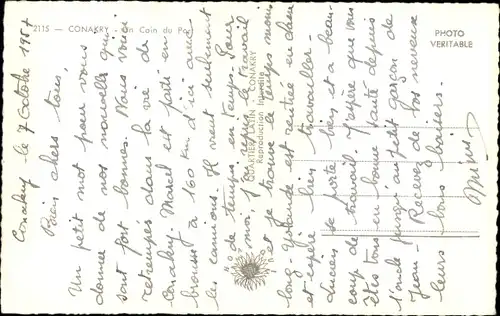 2115 — CONAKRY — Un Coin du Port
PHOTO
VERITABLE
QUARTIER LATIN - CONAKRY
Reproduction Interdite
Conakry le 7 Octobre 1957
Bien chers tous,
Un petit mot pour vous
donner de nos nouvelles qui
sont fort bonnes. Nous voici
retrempés dans la vie de
Conakry. Marcel est parti en
brousse à 160 km d'ici avec
les camions. Il vient seulement
de temps en temps. Pour
moi, j'ai repris le travail
et je trouve le temps moins
long. Yolande est rentrée en classe
et espère bien travailler
se porte bien et a beau-
coup de travail. J'espère que vous
êtes tous en bonne santé depuis
l'oncle jusqu'au petit garçon
Jean. Recevez de vos neveux
leurs bons baisers.